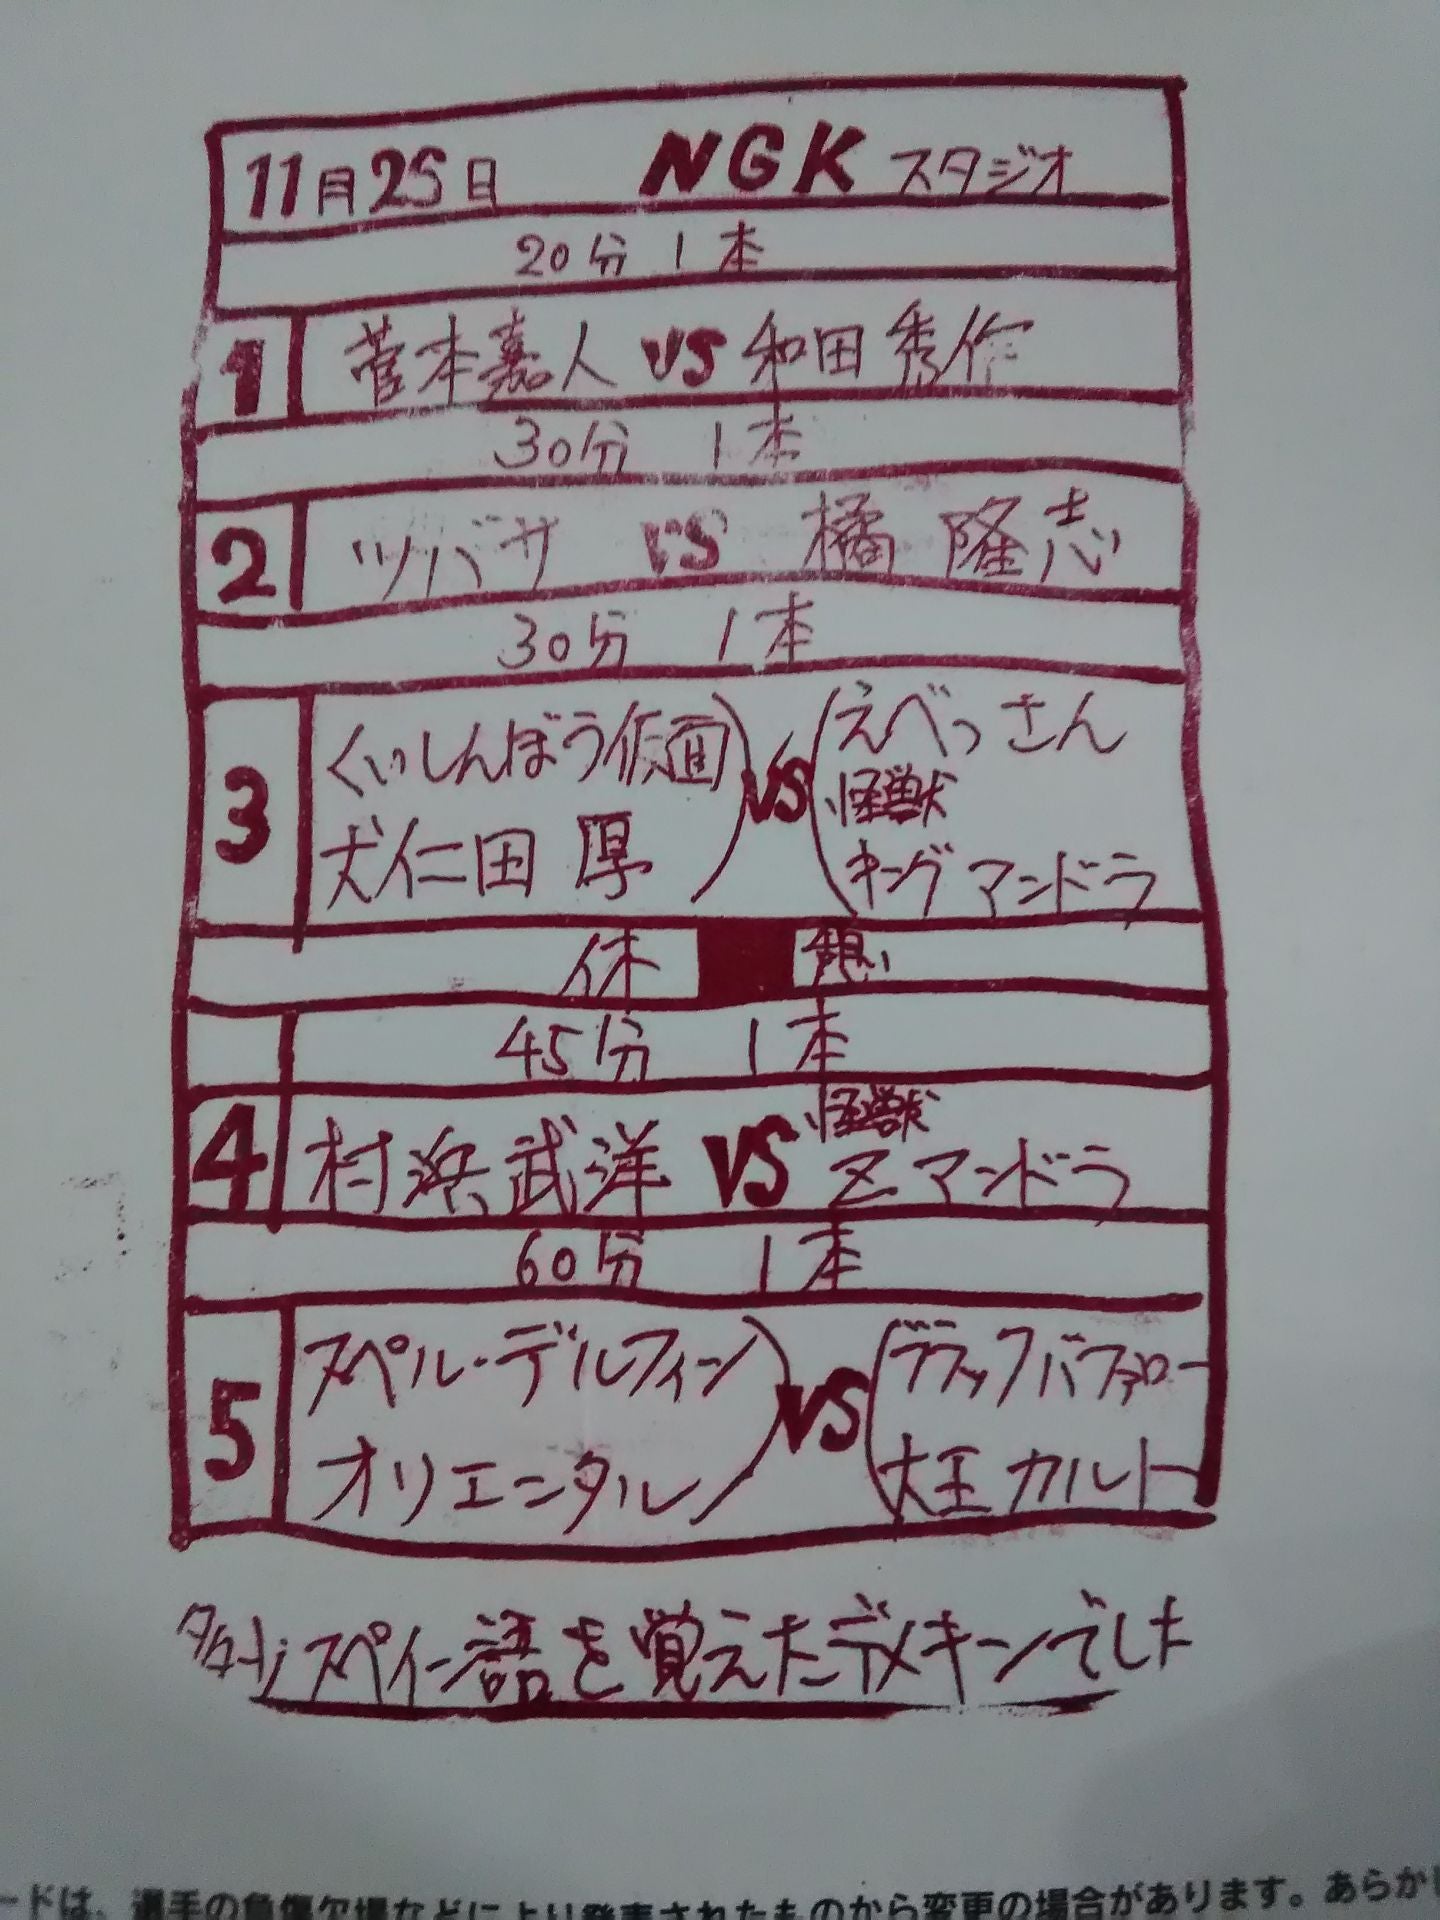 11月25日 NGKスタジオ
20分 1本
1 菅本嘉人 VS 和田秀作
30分 1本
2 ツバサ VS 橘 隆志
30分 1本
3 くいしんぼう仮面 VS えべっさん
犬仁田 厚 怪獣
キングマンドラ
休 憩
45分 1本
4 村浜武洋 VS 怪獣
Zマンドラ
60分 1本
5 スペル・デルフィン VS ブラックバファロー
オリエンタル 大王カルト
スペイン語を覚えたデメキンでした
ードは、選手の負傷欠場などにより発表されたものから変更の場合があります。あらかじ